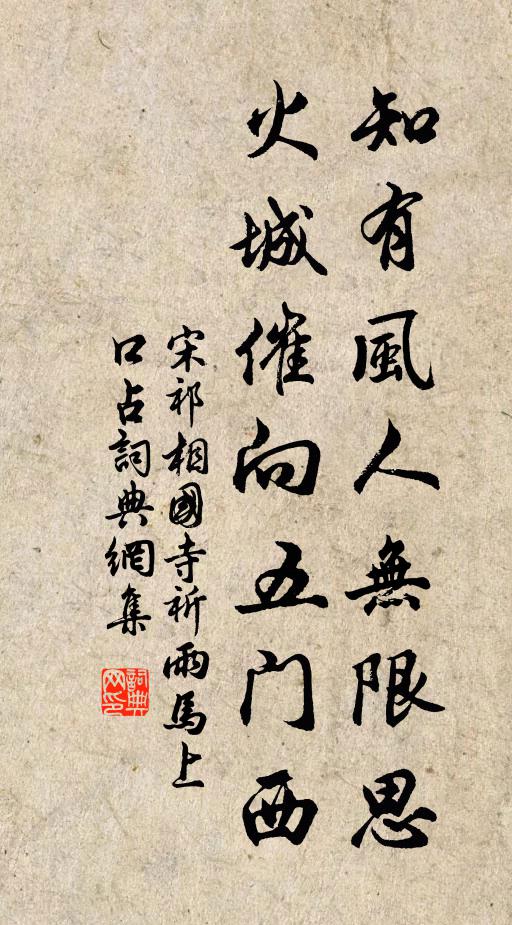 知有風人無限思
火城催向五门西
宋祁相國寺祈雨馬上
口占詞典網集
詞典网印